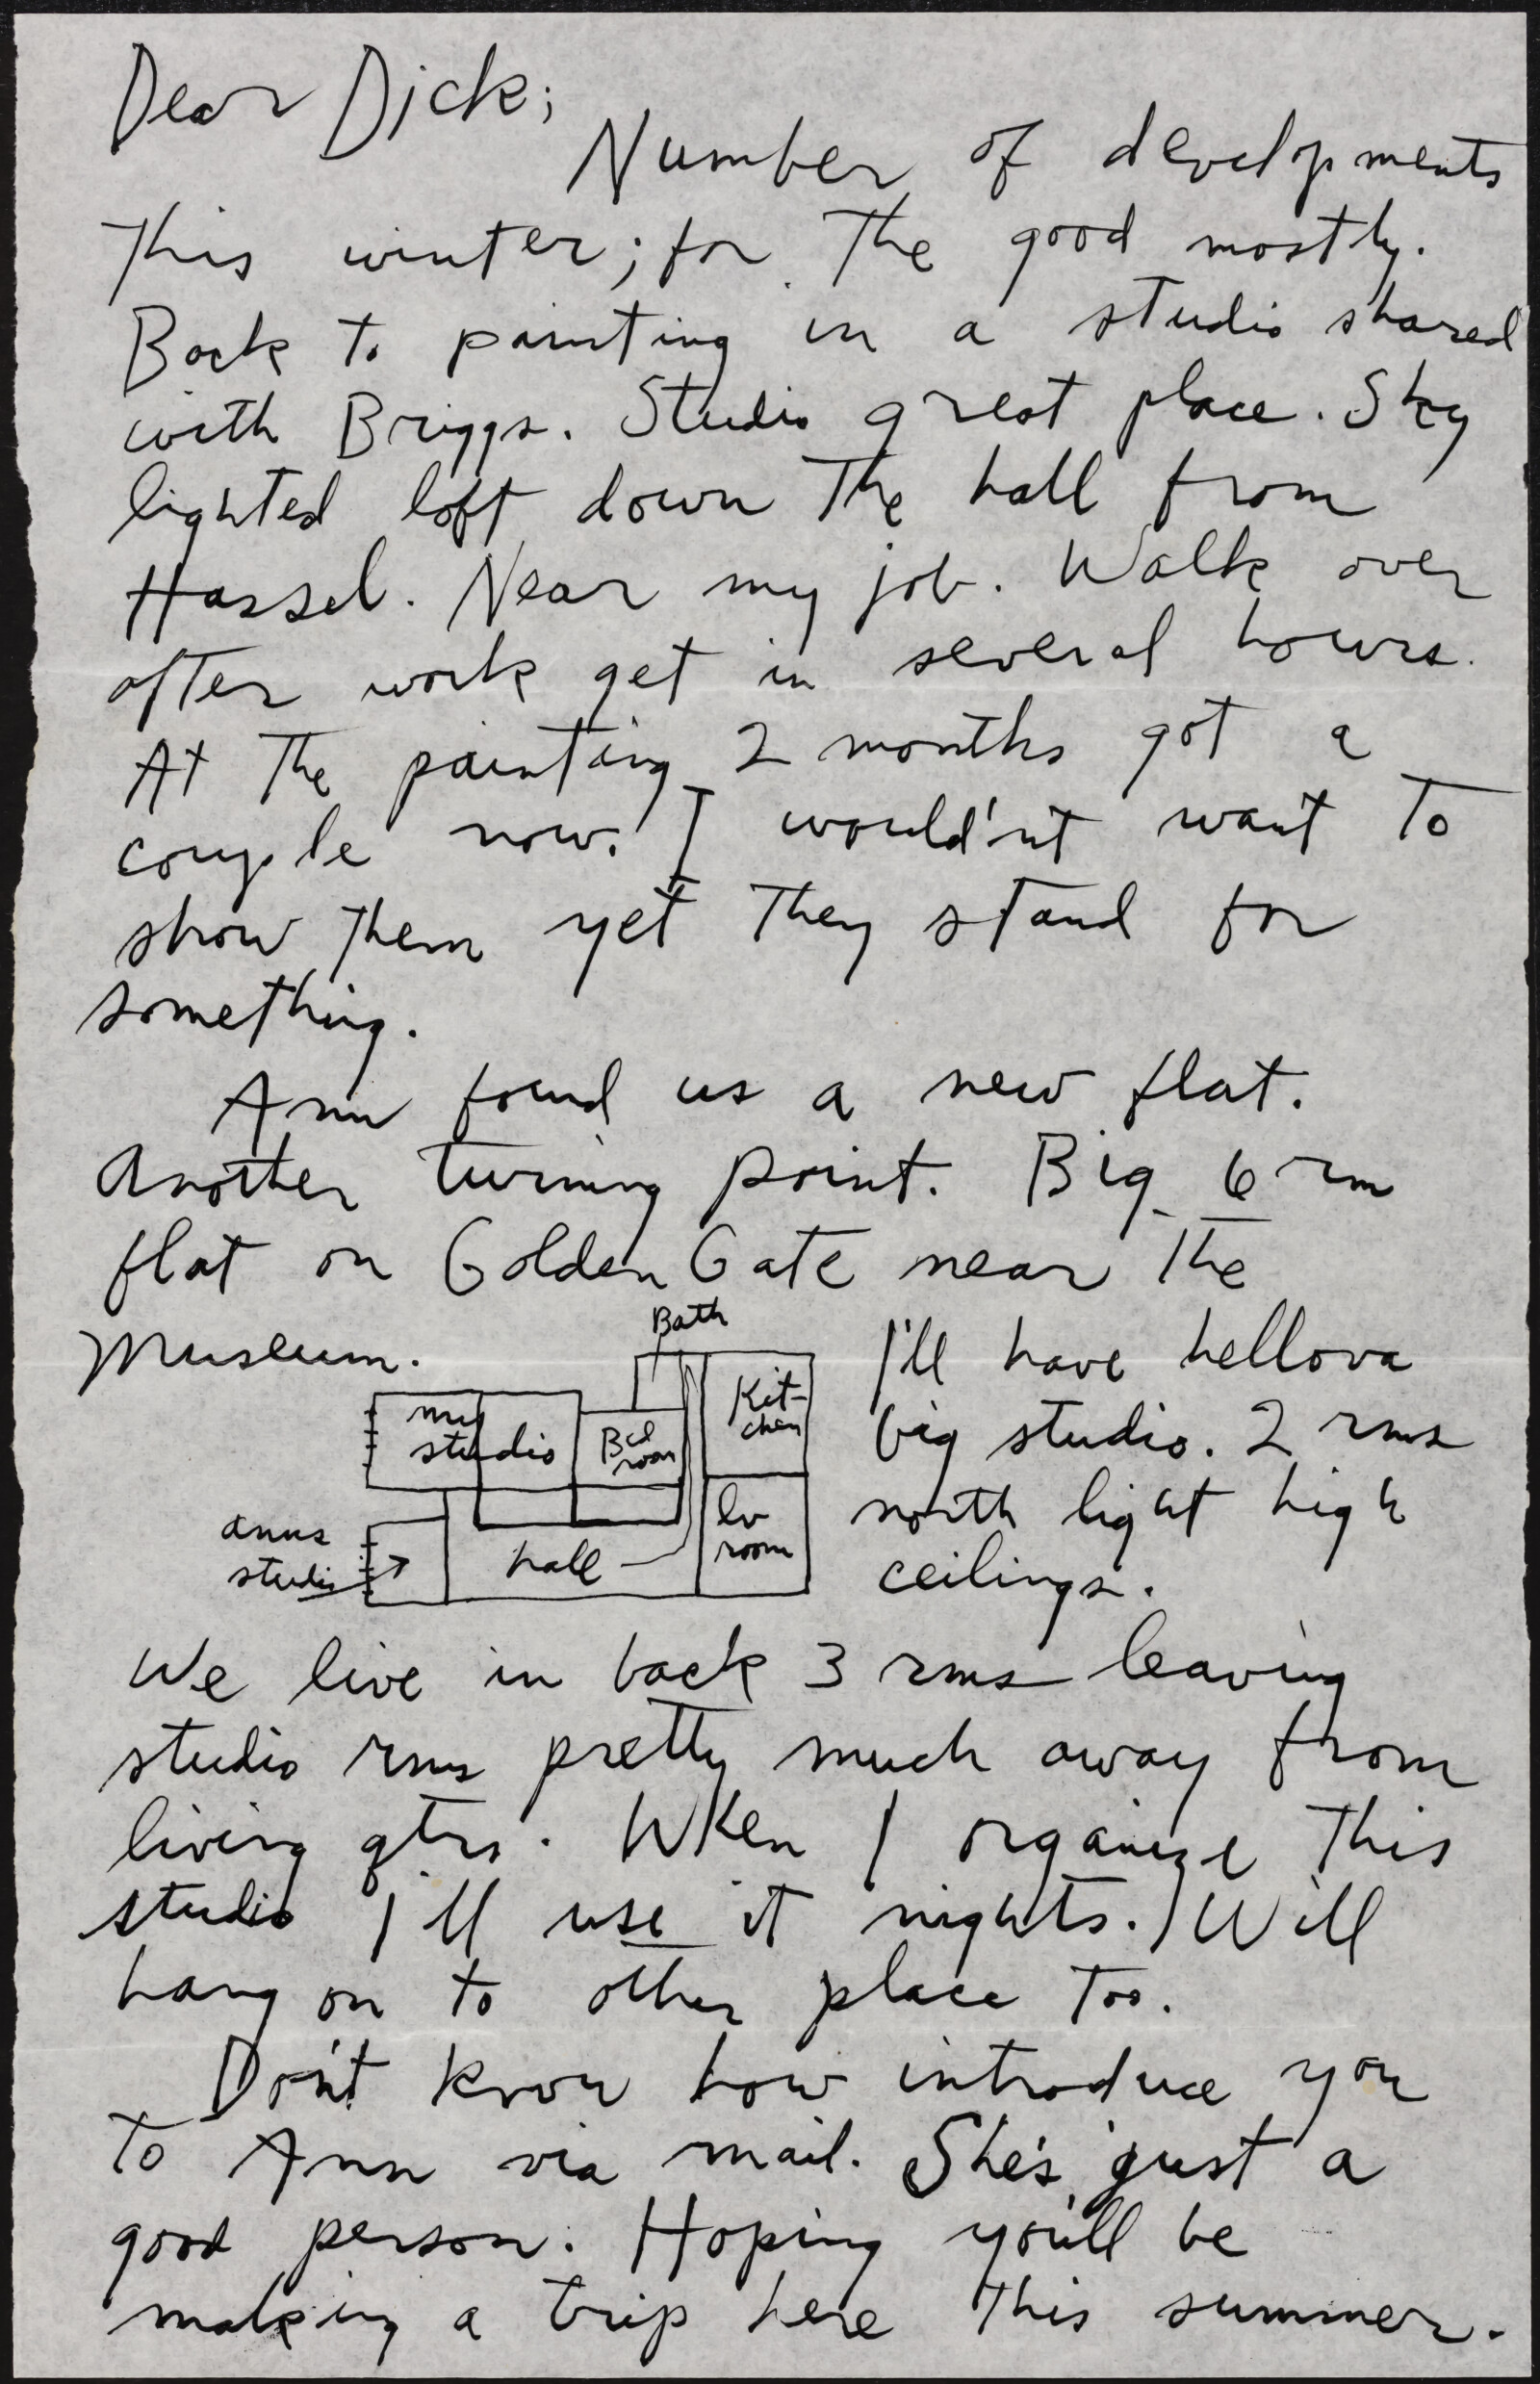 Dear Dick;
Number of developments
this winter; for the good mostly.
Back to painting in a studio shared
with Briggs. Studio great place. Sky
lighted loft down the hall from
Hassel. Near my job. Walk over
after work get in several hours.
At the painting 2 months got a
couple now. I would'nt want to
show them yet they stand for
something.
Ann found us a new flat.
Another turning point. Big 6 rm
flat on Golden Gate near the
Museum.
Bath
my
studio
Bed
room
Kit-
chen
anns
studio
hall
lv
room
I'll have hellova
big studio. 2 rms
north light high
ceilings.
We live in back 3 rms leaving
studio rms pretty much away from
living qtrs. When I organize this
studio I'll use it nights. Will
hang on to other place too.
Don't know how introduce you
to Ann via mail. She's just a
good person. Hoping you'll be
making a trip here this summer.